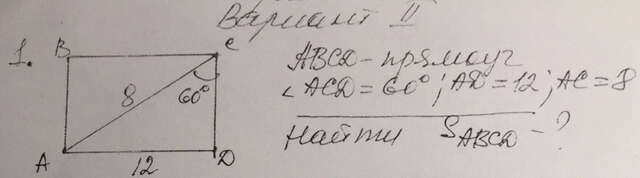 Вариант II
1.
B
C
ABCD - прямоуг
8
60°
∠ ACD = 60°; AD = 12; AC = 8
Найти S ABCD - ?
A
12
D